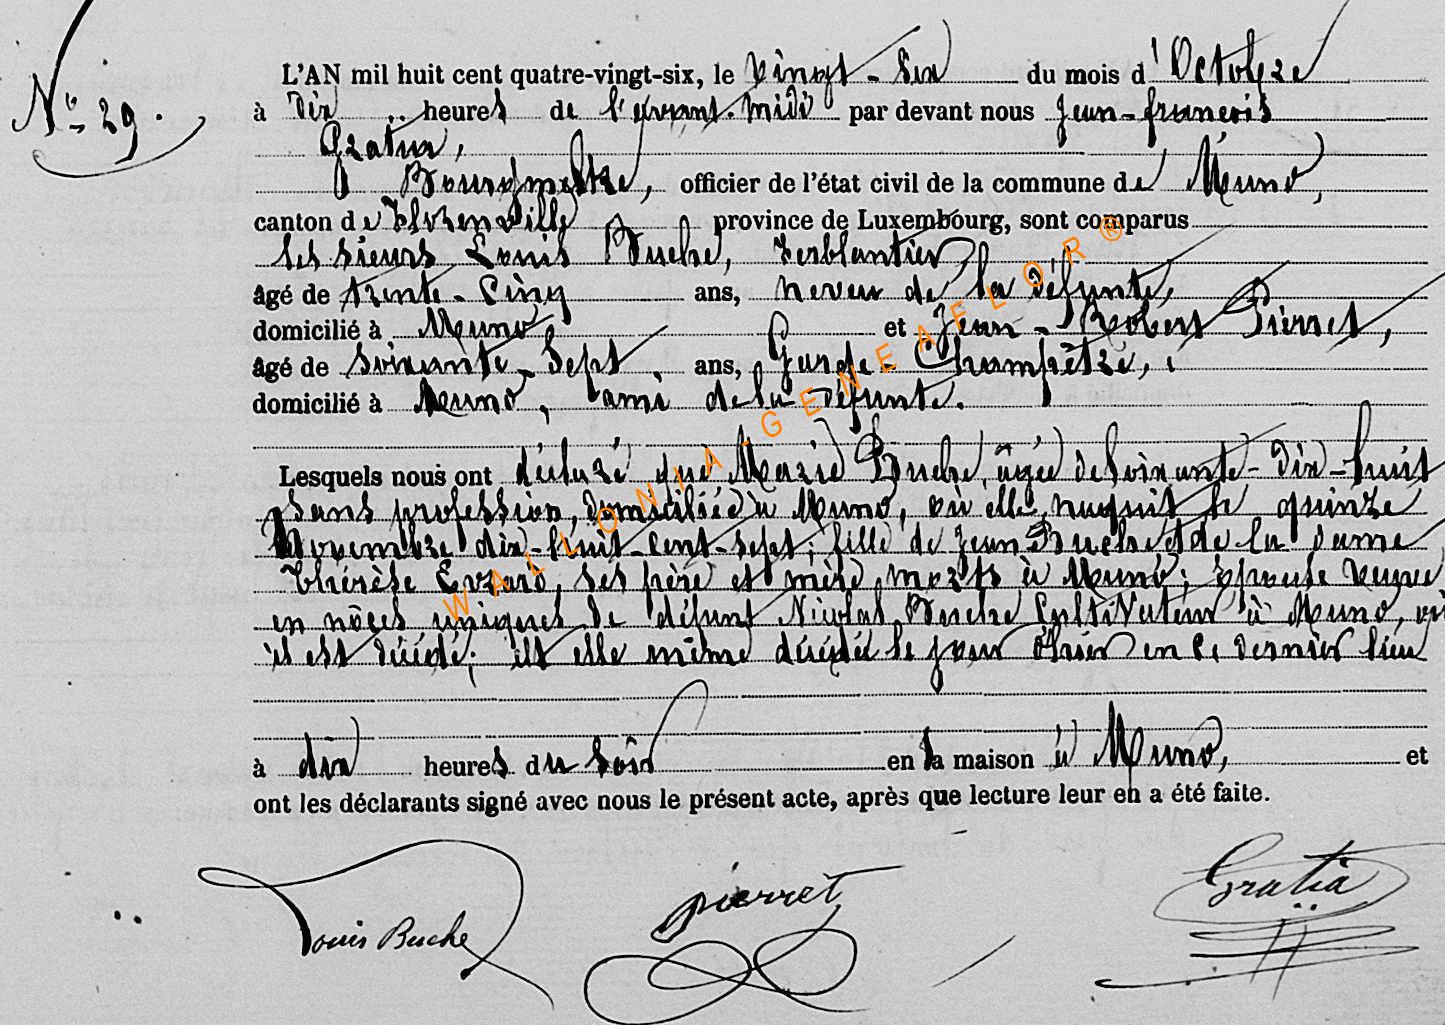 N° 29.
L'AN mil huit cent quatre-vingt-six, le vingt-six du mois d'Octobre
à dix heures de l'avant-midi par devant nous Jean-françois
Gratia,
Bourgmestre, officier de l'état civil de la commune de Muno,
canton de Florenville province de Luxembourg, sont comparus
les sieurs Louis Buche, ferblantier,
âgé de trente-cinq ans, neveu de la défunte,
domicilié à Muno et Jean-Robert Pierret,
âgé de soixante-sept ans, Garde-Champêtre,
domicilié à Muno, ami de la défunte.
Lesquels nous ont déclaré que Marie Buche, âgée de soixante-dix-huit
sans profession, domiciliée à Muno, où elle naquit le quinze
Novembre dix-huit-cent-sept; fille de Jean Buche et de la dame
Thérèse Evrard, ses père et mère morts à Muno; épouse veuve
en nôces uniques de défunt Nicolas Buche Cultivateur à Muno, où
il est décédé; est elle même décédée le jour d'hier en ce dernier lieu
à dix heures du soir en la maison à Muno, et
ont les déclarants signé avec nous le présent acte, après que lecture leur en a été faite.
Louis Buche pierret Gratia
WALLONIA-GENEAFLOR®